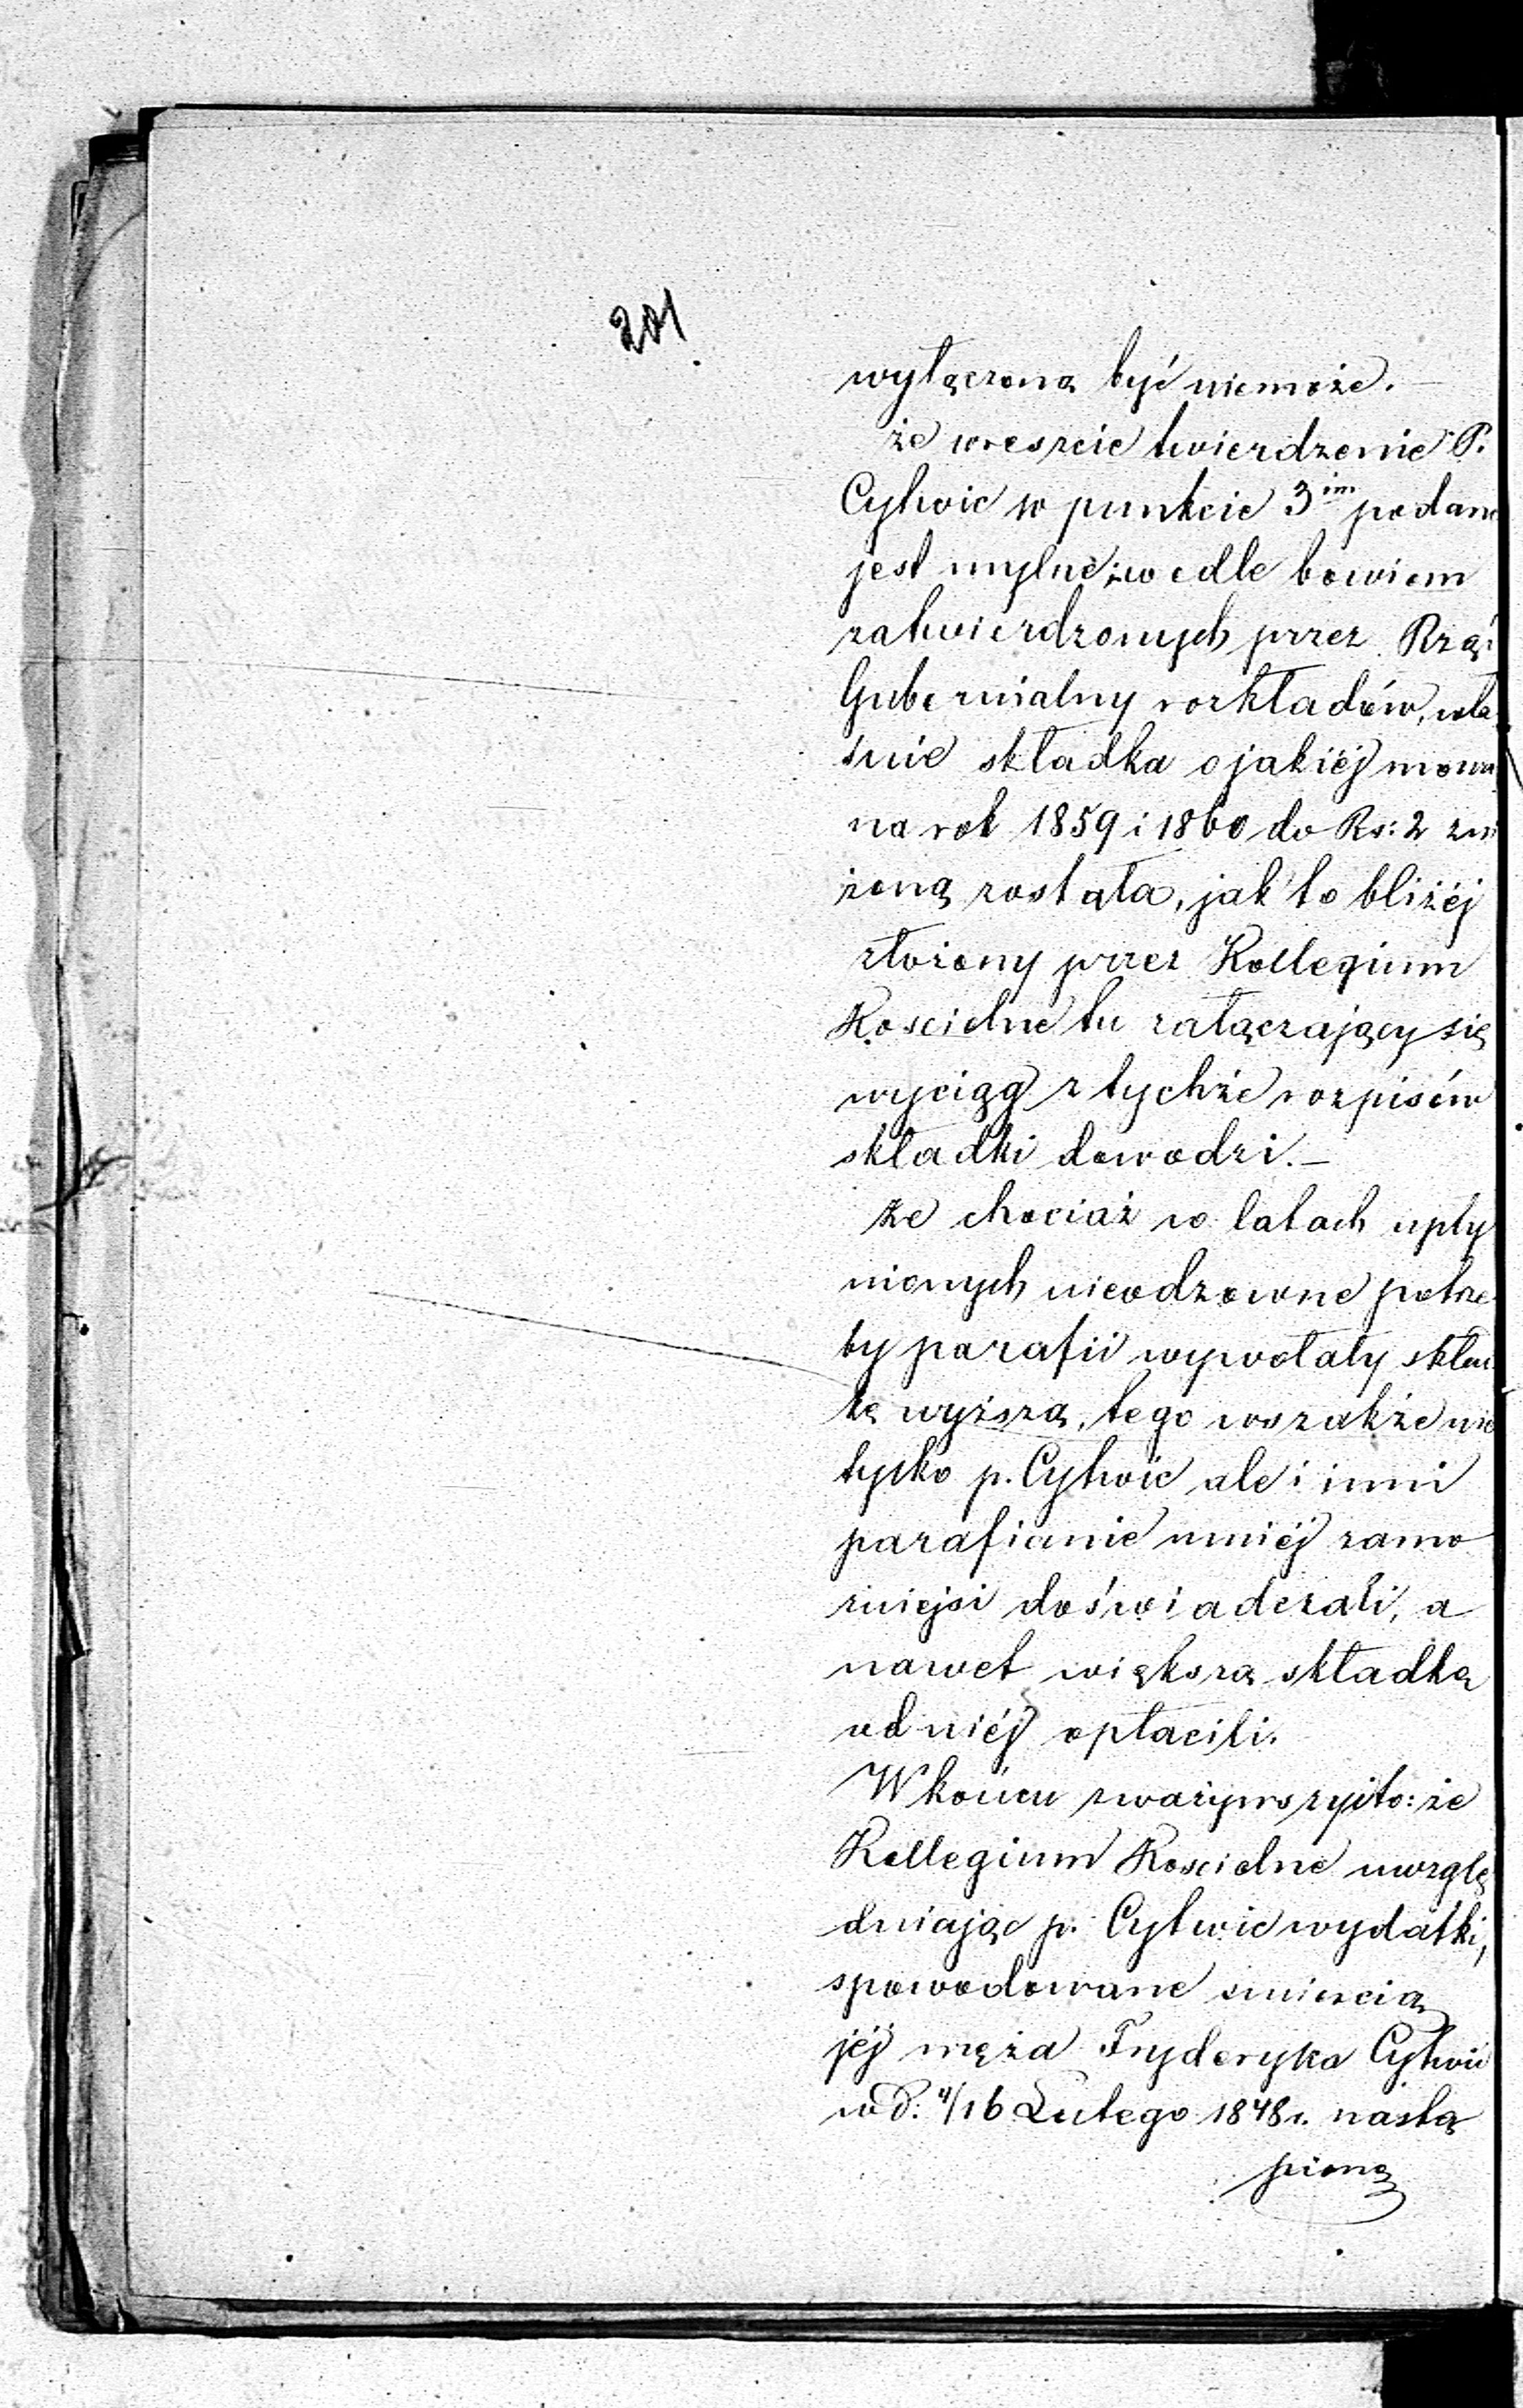 201
wyłączoną być niemoże.—
że wreszcie twierdzenie P.
Cytwic w punkcie 3im podane
jest mylne, wedle bowiem
zatwierdzonych przez Rząd
Gubernialny rozkładów, wła
śnie składka o jakiéj mowa
na rok 1859 i 1860 do Rs: 2 zni
żoną została, jak to bliżéj
złożony przez Kollegium
Koscielne tu załączający się
wyciąg z tychże rozpisów
składki dowodzi.—
że chociaż w latach upły
nionych nieodzowne potrze
by parafii wywołały skład
kę wyższą, tego wszakże nie
tylko p. Cytwic ale i inni
parafianie mniéj zamo
żniejsi doświadczali, a
nawet większą składkę
od niéj opłacili.
W końcu zważywszy i to: że
Kollegium Koscielne uwzglę
dniając p. Cytwic wydatki,
spowodowane smiercią
jéj męża Fryderyka Cytwic
w d: 4/16 Lutego 1848 r. nastą
pioną